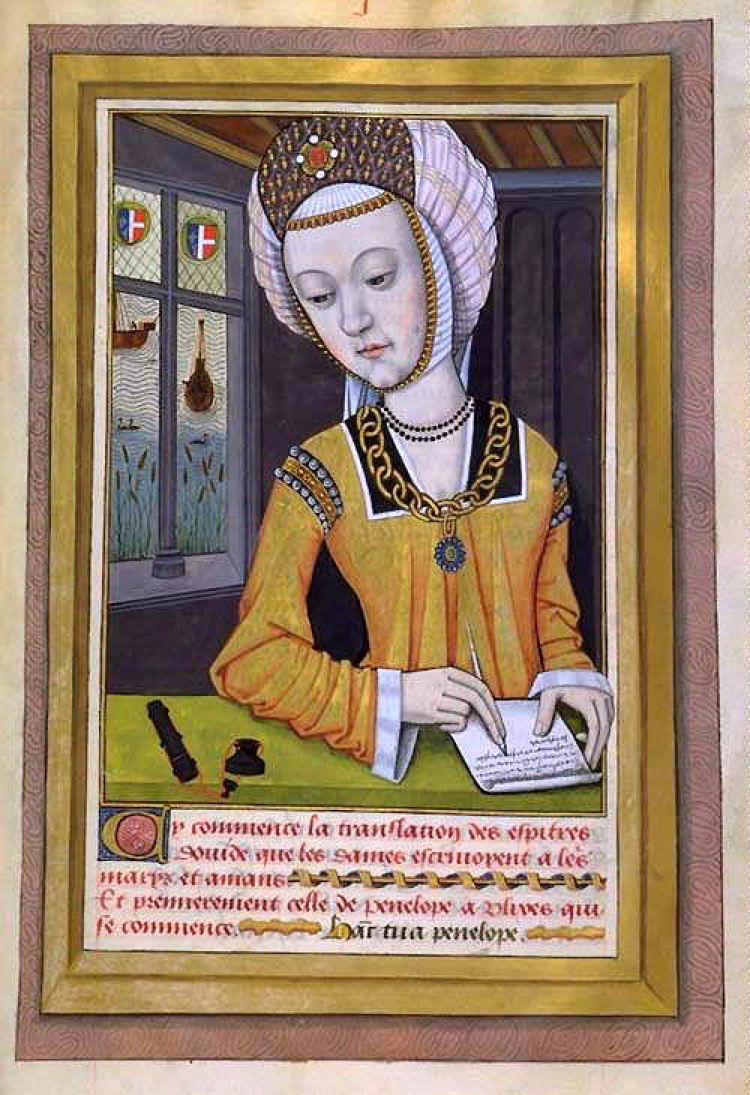 Cy commence la translation des espitres
douide que les dames escriuoyent a les
marys et amans
Et premierement celle de penelope a vlixes qui
se commence. Hāc tua penelope.